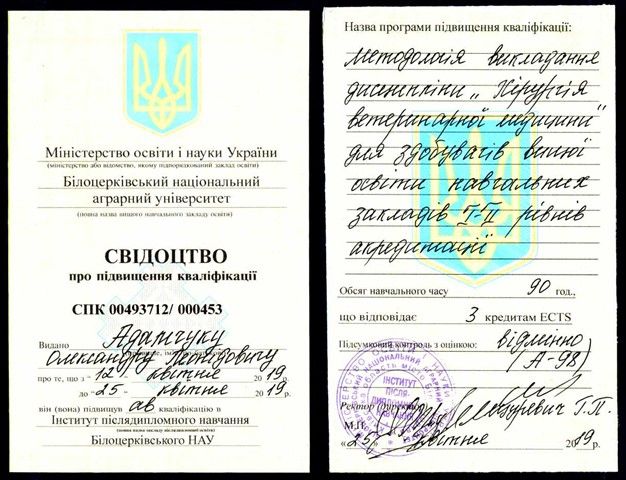 Міністерство освіти і науки України
(міністерство або відомство, якому підпорядкований заклад освіти)
Білоцерківський національний
аграрний університет
(повна назва вищого навчального закладу освіти)
СВІДОЦТВО
про підвищення кваліфікації
СПК 00493712/ 000453
Видано Адамчуку
Олександру Леонідовичу
про те, що з "12" квітня 2019
до "25" квітня 2019р.
він (вона) підвищув ав кваліфікацію в
Інститут післядипломного навчання
Білоцерківського НАУ
Назва програми підвищення кваліфікації:
Методологія викладання
дисципліни „Хірургія
ветеринарної медицини"
для здобувачів вищої
освіти навчальних
закладів I-II рівнів
акредитації
Обсяг навчального часу 90 год.,
що відповідає 3 кредитам ECTS
Підсумковий контроль з оцінкою: відмінно
(А-98)
ІНСТИТУТ
ПІСЛЯ-
Ректор (директор) Мазуревич Г.П.
М.П.
"25" квітня 2019р.